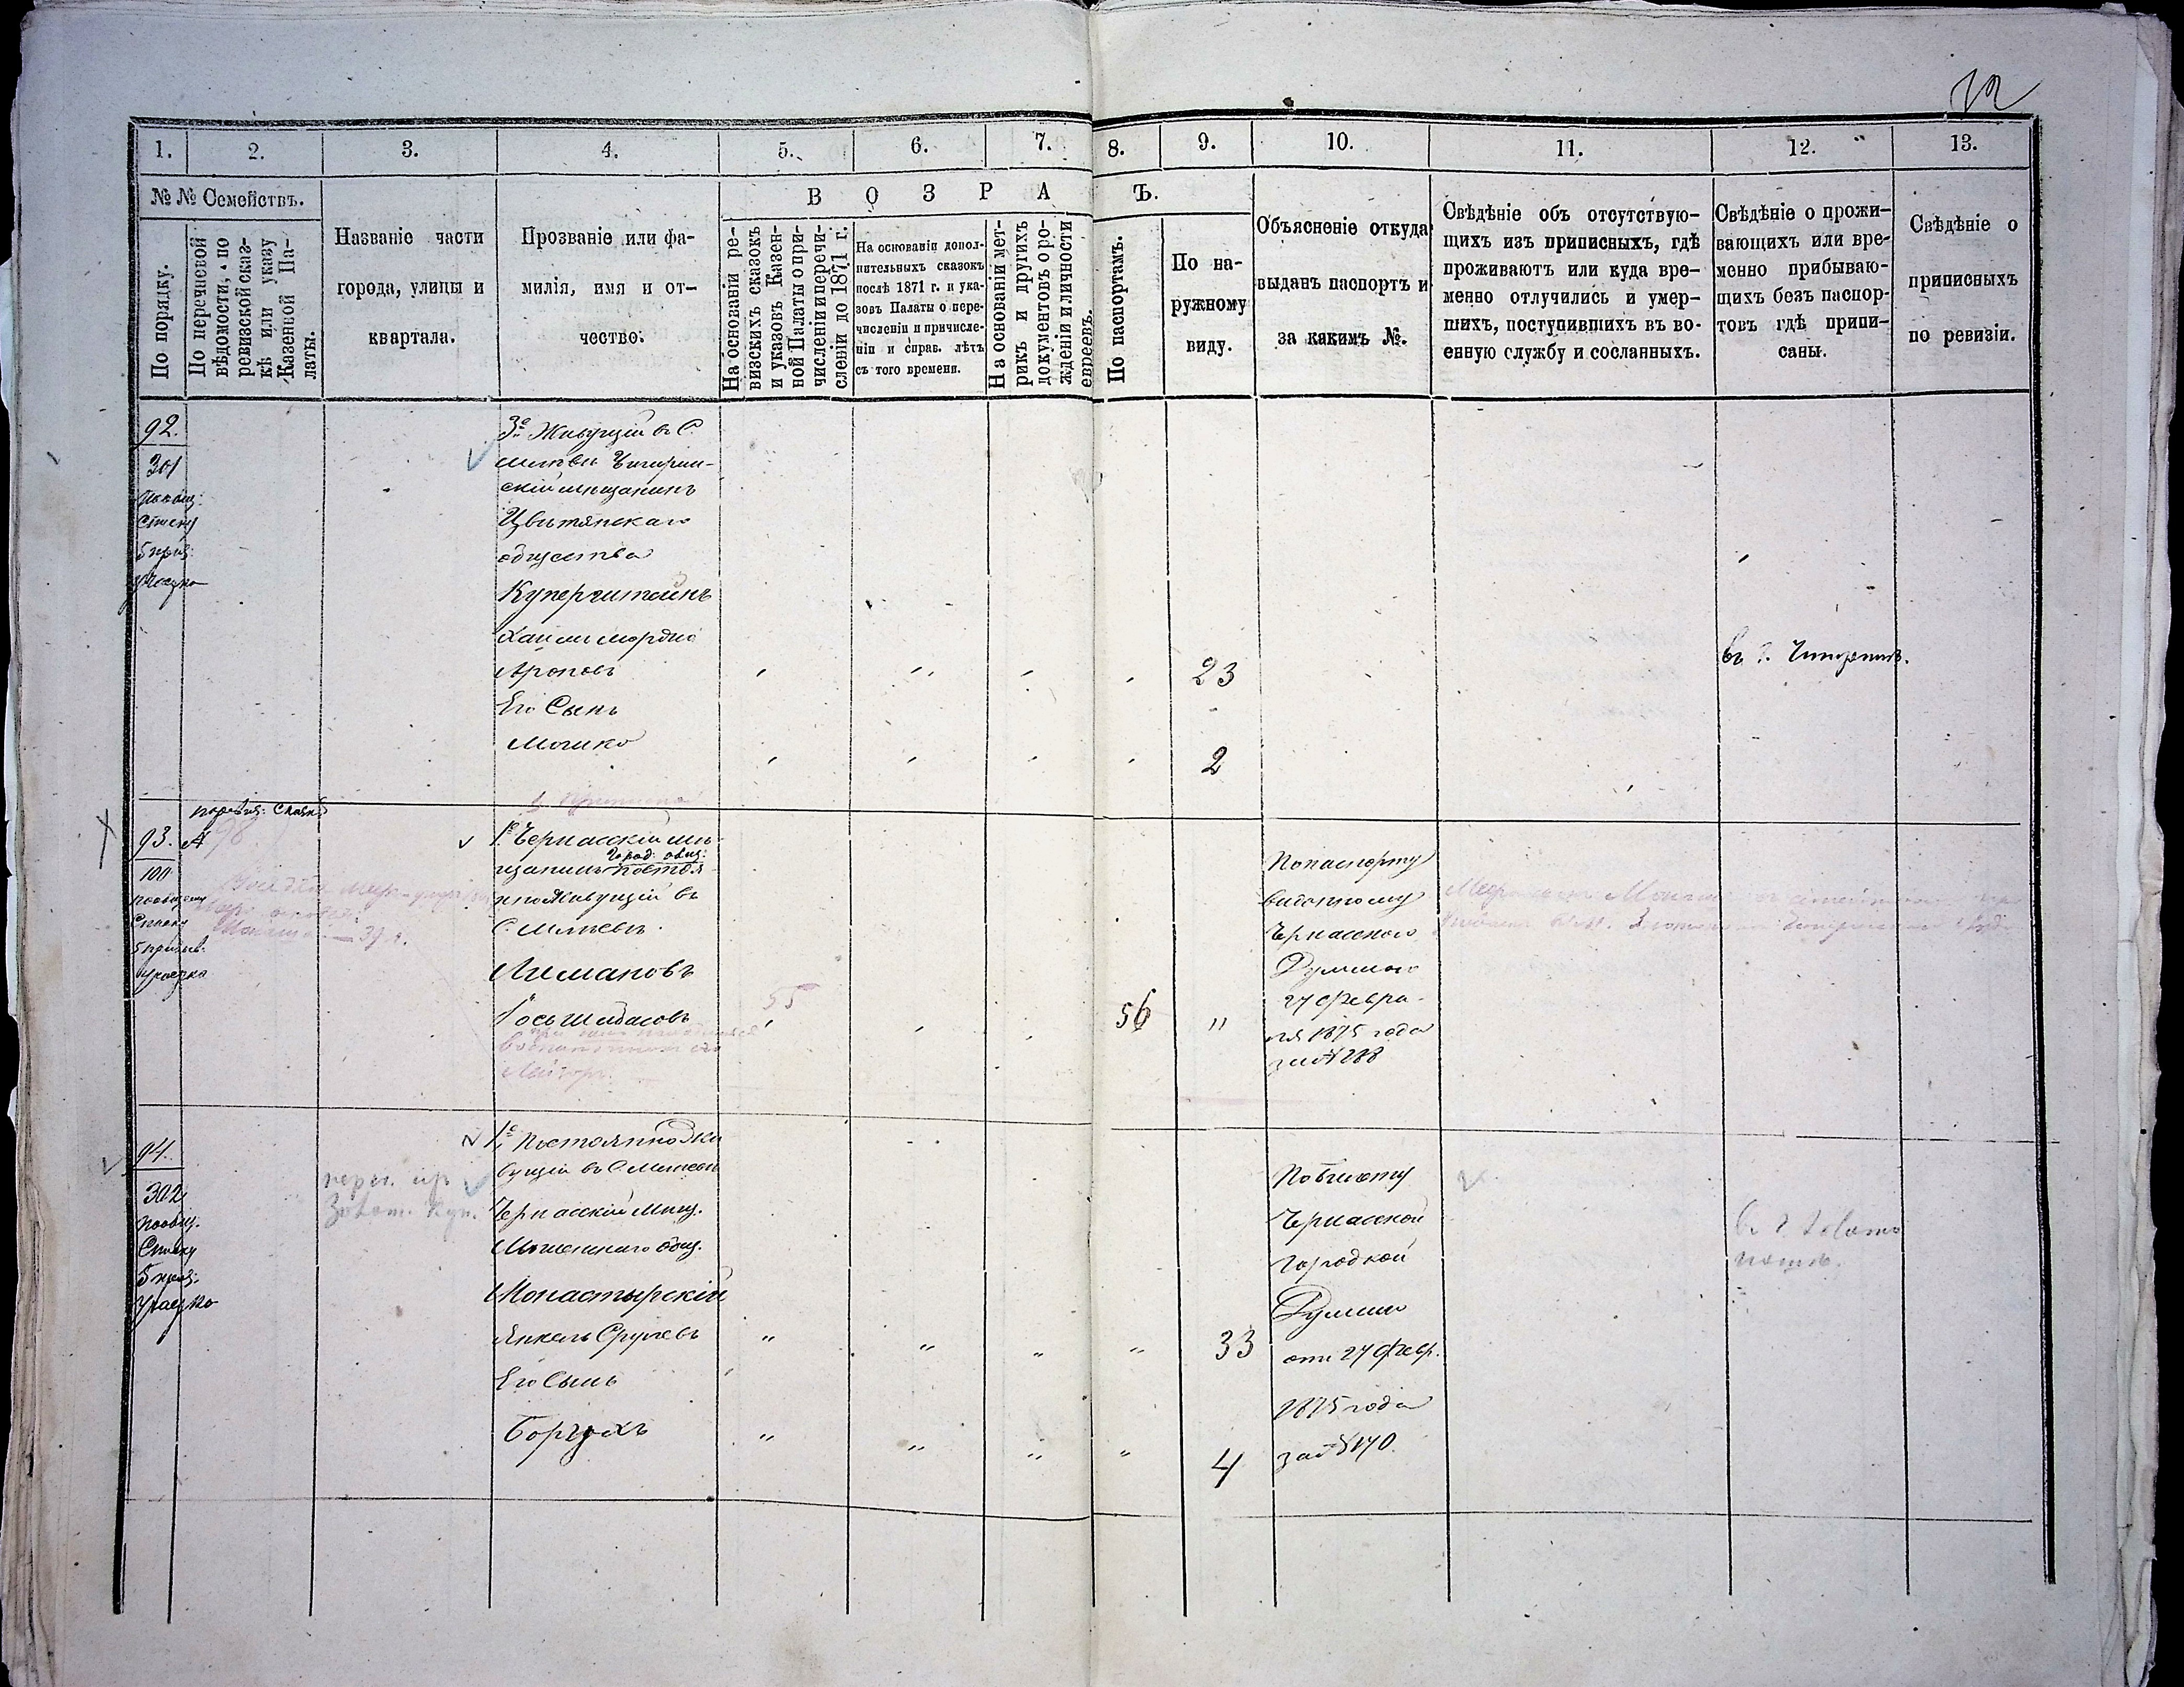 1.
2.
3.
4.
5.
6.
7.
8.
9.
10.
11.
12.
13.
№ № Семействъ.
По порядку.
По перечневой
вѣдомости, а по
ревизской сказ-
кѣ или указу
Казенной Па-
латы.
Названіе части
города, улицы и
квартала.
Прозваніе или фа-
милія, имя и от-
чество.
В О З Р А
Ъ.
На основаніи ре-
визскихъ сказокъ
и указовъ Казен-
ной Палаты о при-
численіи и перечи-
сленіи до 1871 г.
На основаніи допол-
нительныхъ сказокъ
послѣ 1871 г. и ука-
зовъ Палаты о пере-
численіи и причисле-
ніи и справ. лѣтъ
съ того времени.
На основаніи мет-
рикъ и другихъ
документовъ о ро-
жденіи и личности
евреевъ.
По паспортамъ.
По на-
ружному
виду.
Объясненіе откуда
выданъ паспортъ и
за какимъ №.
Свѣдѣніе объ отсутствую-
щихъ изъ приписныхъ, гдѣ
проживаютъ или куда вре-
менно отлучились и умер-
шихъ, поступившихъ въ во-
енную службу и сосланныхъ.
Свѣдѣніе о прожи-
вающихъ или вре-
менно прибываю-
щихъ безъ паспор-
товъ гдѣ припи-
саны.
Свѣдѣніе о
приписныхъ
по ревизіи.
92.
301
по общ:
списку
5 приз:
участка
3е Живущій въ С.
Чигирин-
скій мѣщанинъ
Цвѣтянскаго
общества
Куперштейнъ
Хаимъ Мордко
Ароновъ
23
въ г. Чигиринѣ.
Его Сынъ
Мошко
2
по ревиз: сказкѣ
93.
№ 98
100
по общему
списку
5 призыв.
участка
1е Черкасскій мѣ-
Город: общ:
щанинъ постоя
нно живущій въ
С. Мліевѣ.
Лимановъ
55
56
"
По паспорту
выданному
Черкасскою
Думою
27 Февра-
ля 1875 года
за № 288
94.
302
по общ.
списку
5 приз:
участка
1е Постоянно жи
вущій въ С. Мліевѣ
Черкасскій Мѣщ.
общ.
Монастырскій
Янкель Срулевъ
"
"
"
"
33
Его Сынъ
Борухъ
"
"
"
"
4
По билету
Черкасской
Городской
Думы
отъ 27 Февр.
1875 года
за № 170.